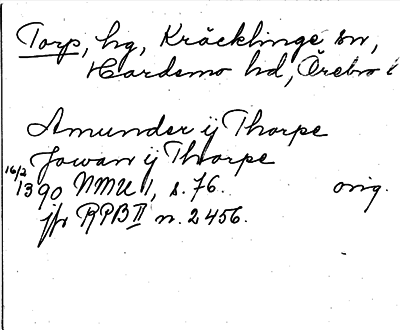 Torp, hg, Kräcklinge sn,
Hardemo hd, Örebro l
Amunder ij Thorpe
Jowan ij Thorpe
16/2 1390 NMU 1, s. 76. orig.
jfr RPB II n. 2456.